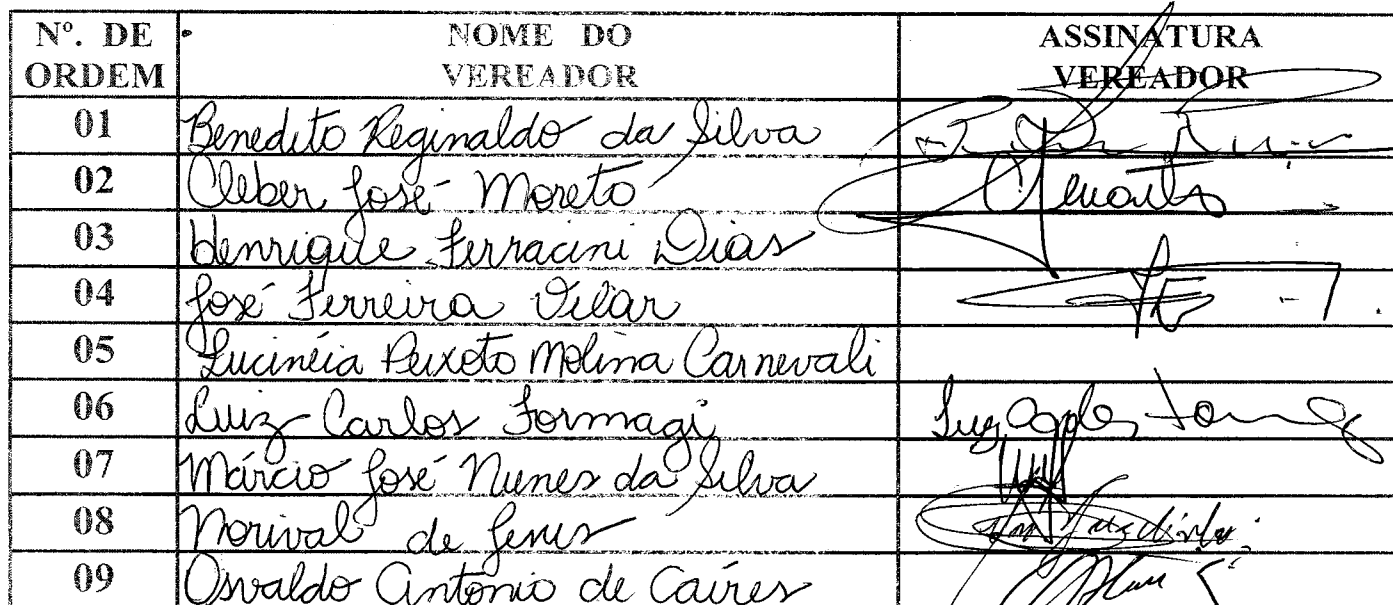 Nº. DE ORDEM
NOME DO VEREADOR
ASSINATURA VEREADOR
01 Benedito Reginaldo da Silva
02 Cleber José Moreto
03 Henrique Ferracini Dias
04 José Ferreira Vilar
05 Lucinéia Peixoto Molina Carnevali
06 Luiz Carlos Formagi
07 Márcio José Nunes da Silva
08 Norival de Jesus
09 Osvaldo Antonio de Caires